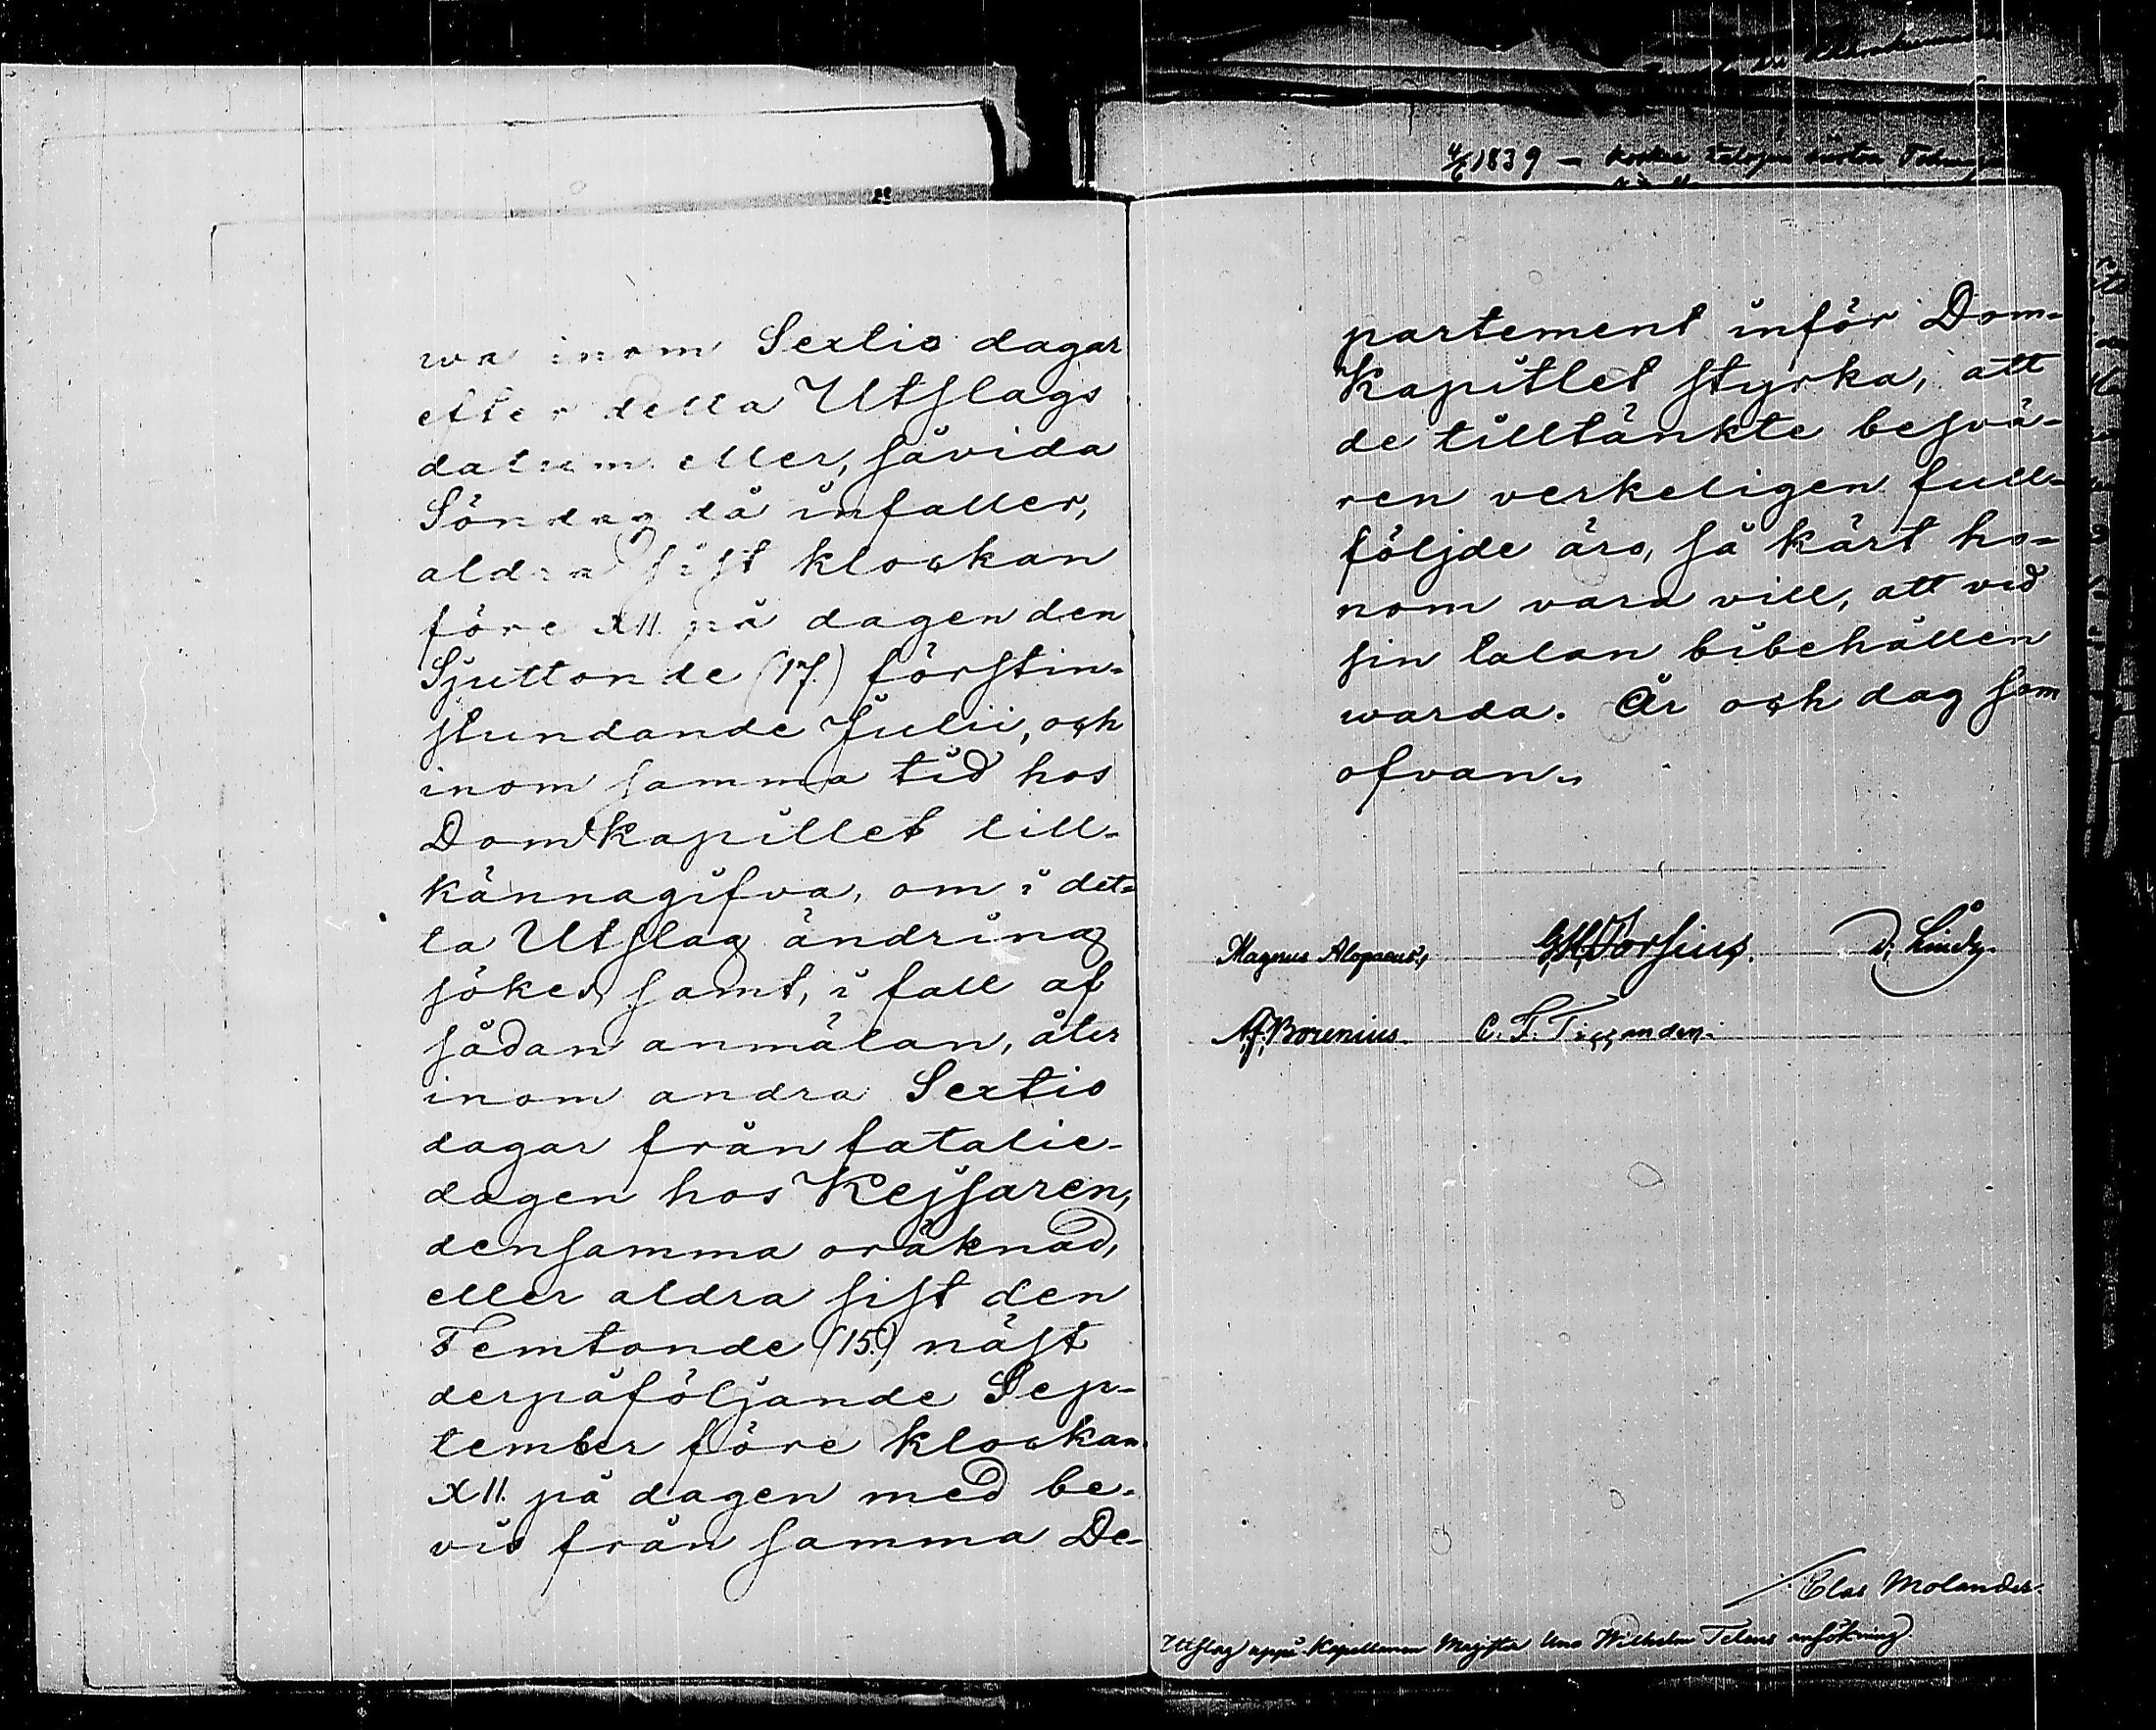 wa inom Sextio dagar
efter detta Utslags
datum eller, såvida
Söndag då infaller,
aldra sist klockan
före XII. på dagen den
Sjuttonde (17.) förstin-
stundande Julii, och
inom samma tid hos
DomKapitlet till-
kännagifva, om i det-
ta Utslag ändring
sökes, samt, i fall af
sådan anmälan, åter
inom andra Sextio
dagar från fatalie-
dagen hos Kejsaren,
densamma oräknad,
eller aldra sist den
Femtonde (15.) näst
derpåföljande Sep-
tember före klockan
XII. på dagen med be-
vis från samma De-
4/6 1839 –
partement inför Dom-
Kapitlet styrka, att
de tilltänkte besvä-
ren verkeligen full-
följde äro, så kärt ho-
nom vara vill, att vid
sin talan bibehållen
warda. År och dag som
ofvan.
Magnus Alopaeus. Forsius.
Borenius. C. F.
Clas Molander.
Utslag uppå Kapellanen Magister Uno Wilhelm Telens ansökning.